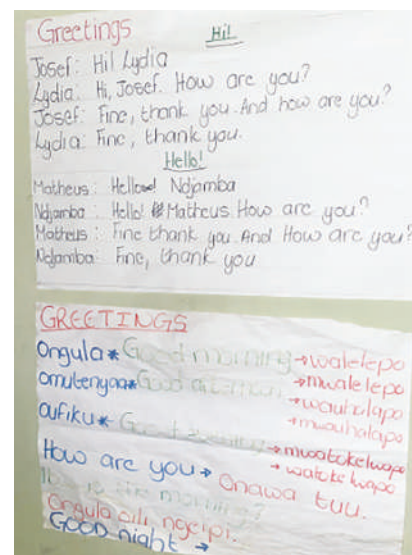 Greetings
Hi!
Josef: Hi! Lydia
Lydia: Hi, Josef. How are you?
Josef: Fine, thank you. And how are you?
Lydia: Fine, thank you.
Hello!
Matheus: Hello! Ndjamba
Ndjamba: Hello! Matheus How are you?
Matheus: Fine thank you. And How are you?
Ndjamba: Fine, thank you
GREETINGS
Ongula * Good morning → walelepo
→ mwalelepo
omutenya * Good afternoon → wauhalapo
→ mwauhalapo
oufiku * Good evening → mwatokelwapo
→ watokelwapo
How are you → Onawa tuu.
is the morning?
Ongula oili ngeipi.
GOOD night →